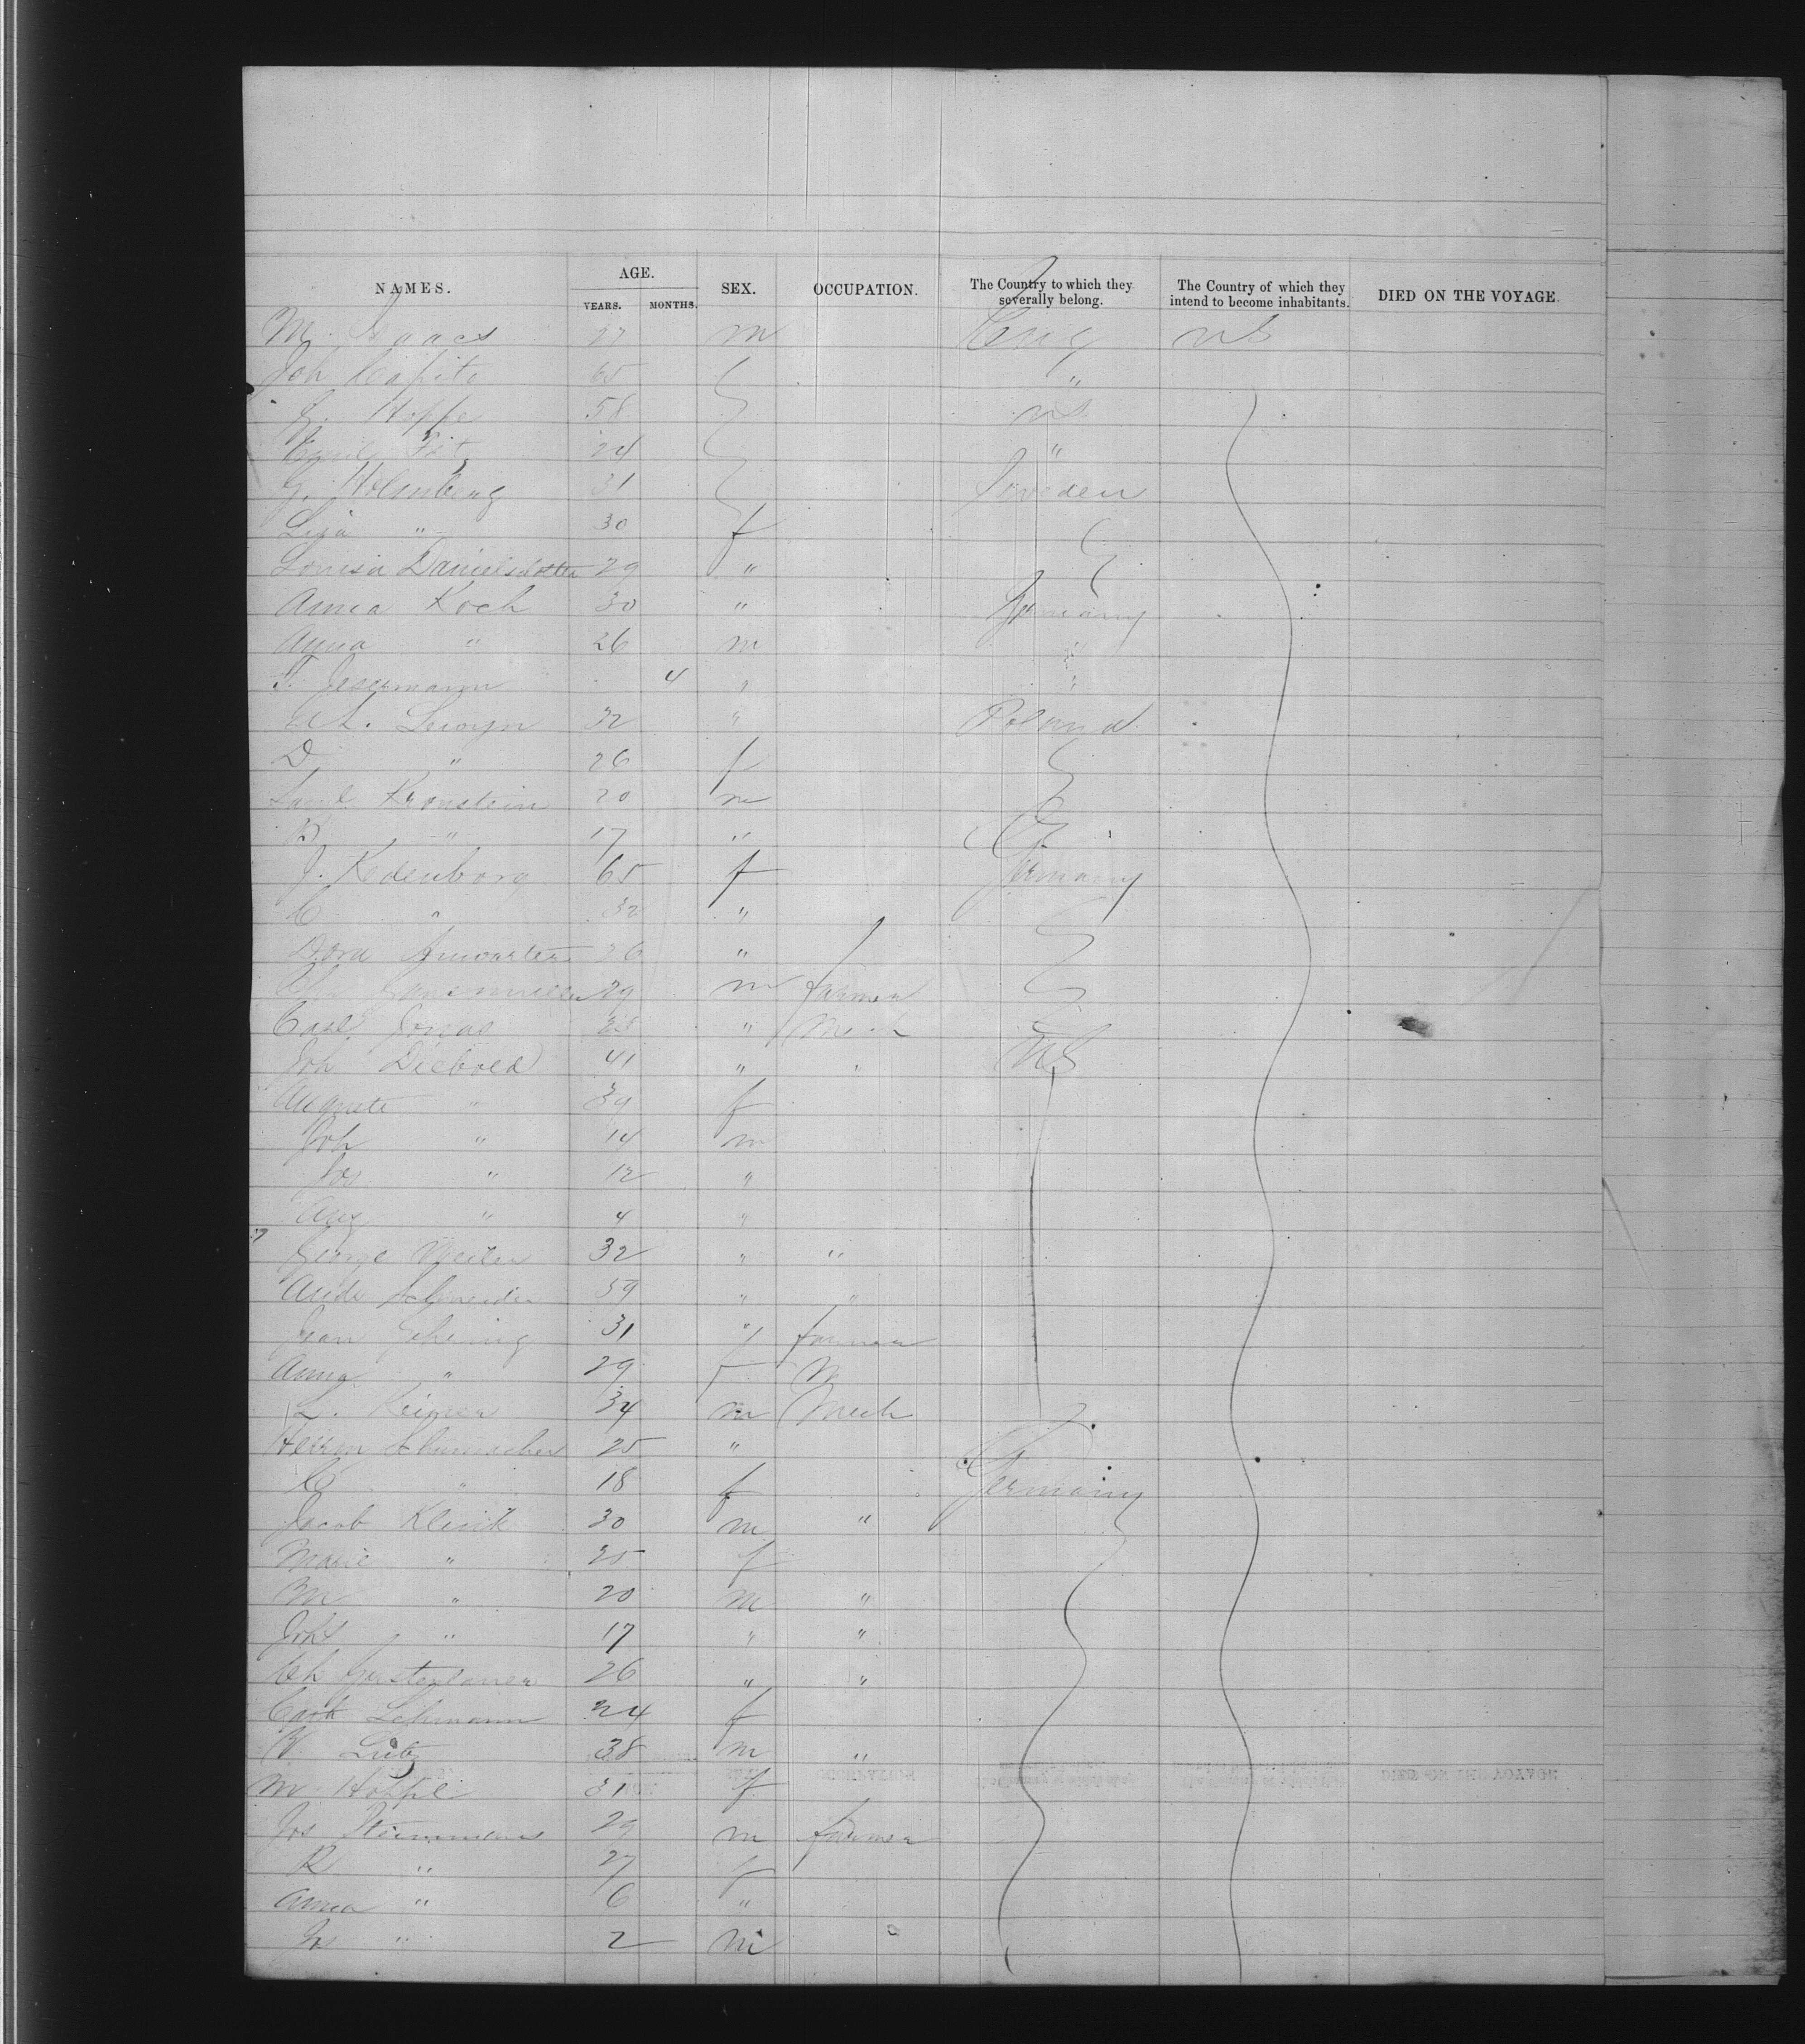 NAMES. AGE. YEARS. MONTHS. SEX. OCCUPATION. The Country to which they severally belong. The Country of which they intend to become inhabitants. DIED ON THE VOYAGE.
M. Isaacs 27 m Eng US
Joh Capito 65 "
J. Hoppe 58 US
Emil 24 "
G. Holmberg 31 Sweden
Liza " 30 f
Lovisa Danielsdotter 29 "
Anna Koch 30 " Germany
Anna " 26 m "
T. Jessemann 4 " "
32 " Poland
D " 26 f
Saml Kronstein 20 m
" 17 "
J. Kedenborg 65 f Germany
C " 32 "
Dora 26 "
29 m farmer
Carl Jonas " Mech
Joh Diebold 41 " " US
Auguste " 39 f
Joh " 14 m
Jos " 12 "
Aug " 4 "
George 32 " "
Schneider 59 " "
Jean Gehring 31 " farmer
Anna " 29 f
L. Reimer 34 m Mech
Herrm Schumacher 25 "
C " 18 f Germany
Jacob Klink 30 m "
Marie " 25 f
M " 20 m "
Joh " 17 " "
Ch Gerstenlauer 26 " "
Cath Lehmann 24 f
Lutz 38 m "
M. Hoppe 31 f
Jos 29 m farmer
R " 27 f
Anna " 6 "
Jos " 2 m